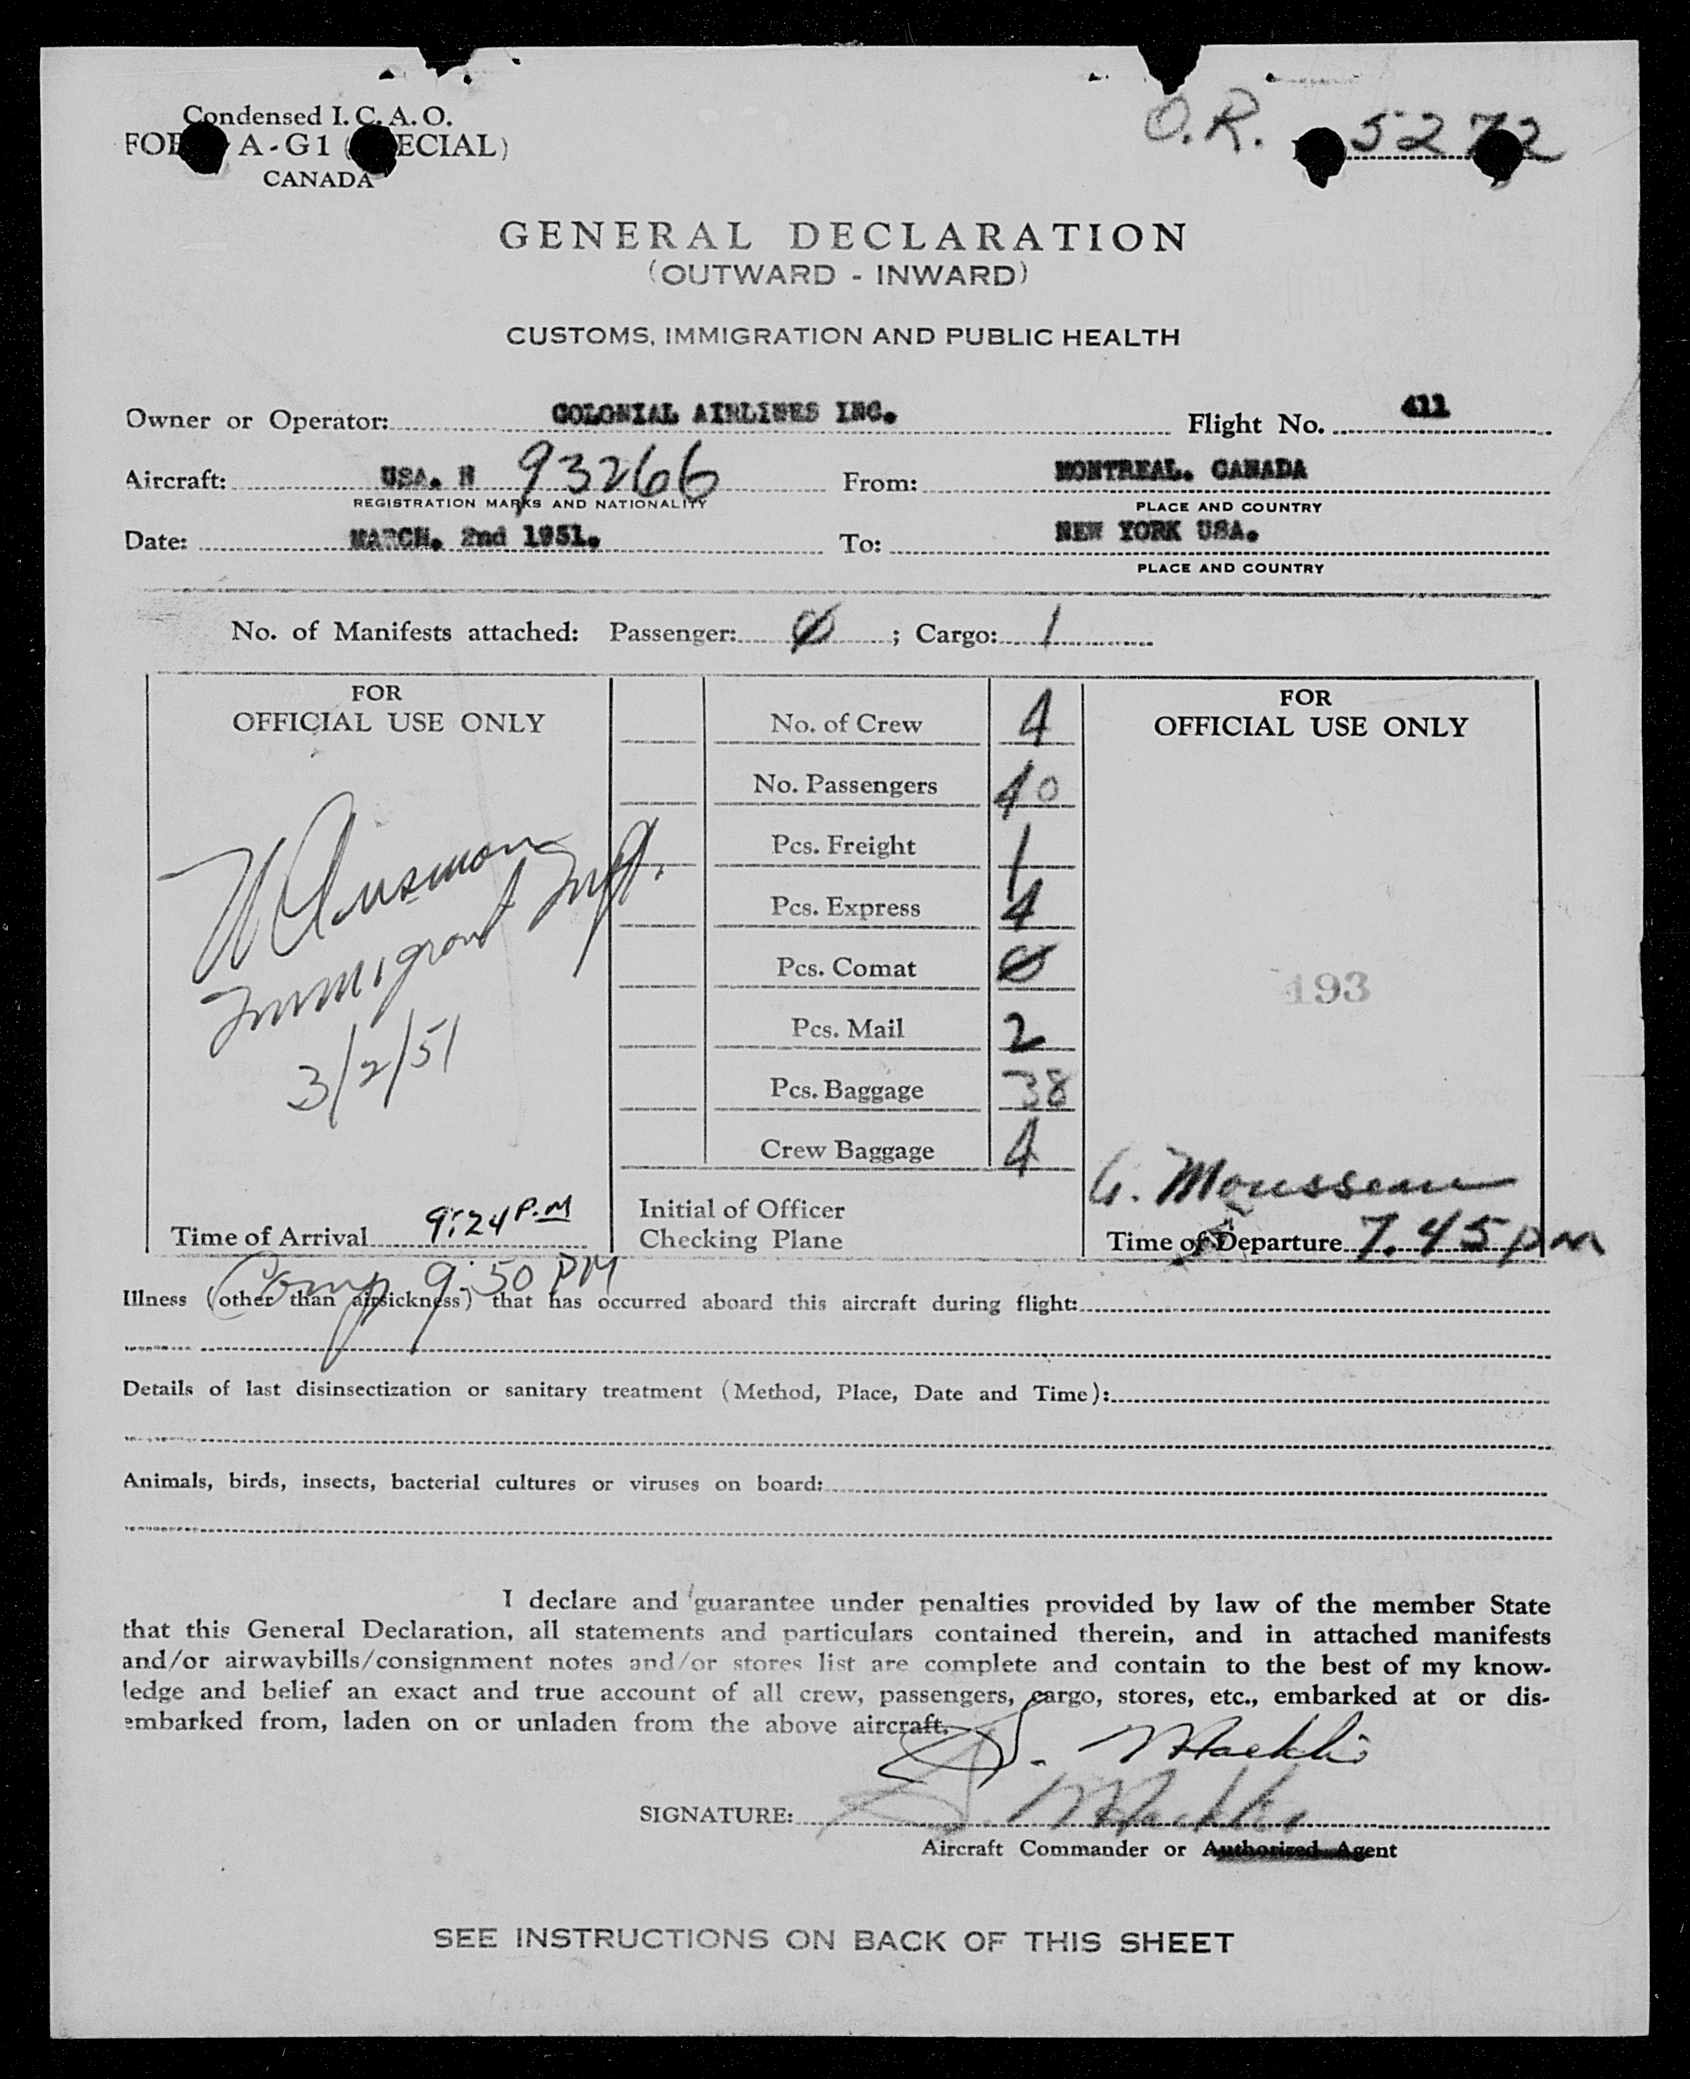 Condensed I. C. A. O.
A-G1
CANADA
O.R. 5272
GENERAL DECLARATION
(OUTWARD - INWARD)
CUSTOMS, IMMIGRATION AND PUBLIC HEALTH
Owner or Operator: COLONIAL AIRLINES INC. Flight No. 411
Aircraft: USA. N 93266 From: MONTREAL. CANADA
REGISTRATION MARKS AND NATIONALITY PLACE AND COUNTRY
Date: MARCH. 2nd 1951. To: NEW YORK USA.
PLACE AND COUNTRY
No. of Manifests attached: Passenger: 0 ; Cargo: 1
FOR
OFFICIAL USE ONLY
3/2/51
Time of Arrival 9:24 P.M
No. of Crew 4
No. Passengers 40
Pcs. Freight 1
Pcs. Express 4
Pcs. Comat 0
Pcs. Mail 2
Pcs. Baggage 38
Crew Baggage 4
Initial of Officer
Checking Plane
FOR
OFFICIAL USE ONLY
193
G. Mousseau
Time of Departure 7.45 pm
Comp 9:50 PM
Illness (other than airsickness) that has occurred aboard this aircraft during flight:
Details of last disinsectization or sanitary treatment (Method, Place, Date and Time):
Animals, birds, insects, bacterial cultures or viruses on board:
I declare and guarantee under penalties provided by law of the member State
that this General Declaration, all statements and particulars contained therein, and in attached manifests
and/or airwaybills/consignment notes and/or stores list are complete and contain to the best of my know-
ledge and belief an exact and true account of all crew, passengers, cargo, stores, etc., embarked at or dis-
embarked from, laden on or unladen from the above aircraft.
SIGNATURE:
Aircraft Commander or Authorized Agent
SEE INSTRUCTIONS ON BACK OF THIS SHEET